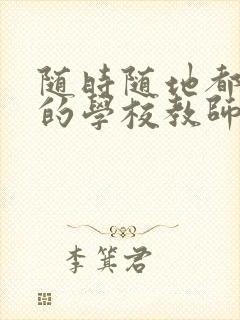 随時随地都
的學校教師
李箕君